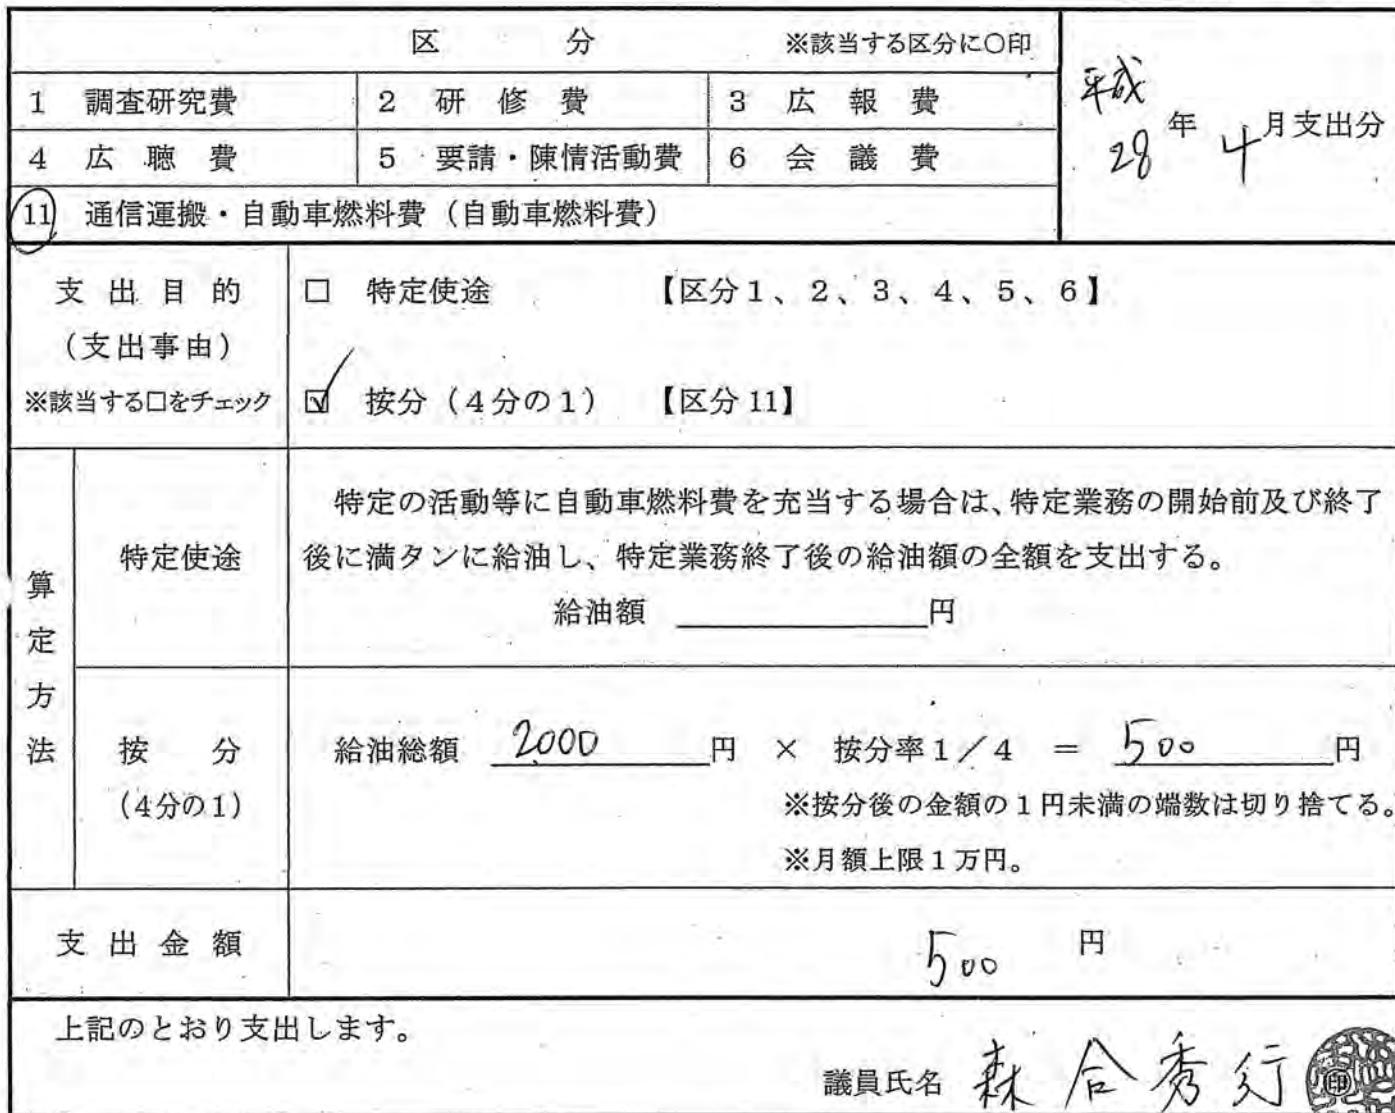 区 分 ※該当する区分に○印
1 調査研究費 2 研修費 3 広報費
4 広聴費 5 要請・陳情活動費 6 会議費
11 通信運搬・自動車燃料費（自動車燃料費）
平成
28 年 4 月支出分
支出目的
（支出事由）
※該当する□をチェック
□ 特定使途 【区分1、2、3、4、5、6】
☑ 按分（4分の1） 【区分11】
算定方法
特定使途
特定の活動等に自動車燃料費を充当する場合は、特定業務の開始前及び終了
後に満タンに給油し、特定業務終了後の給油額の全額を支出する。
給油額 円
按分
（4分の1）
給油総額 2000 円 × 按分率1／4 ＝ 500 円
※按分後の金額の1円未満の端数は切り捨てる。
※月額上限1万円。
支出金額 500 円
上記のとおり支出します。
議員氏名 森合秀行 印